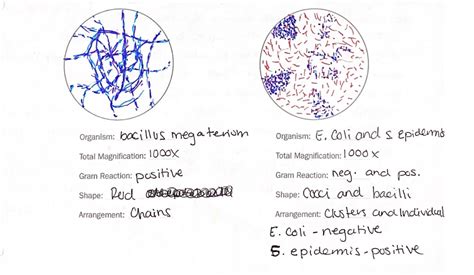 Organism: bacillus megaterium
Total Magnification: 1000x
Gram Reaction: positive
Shape: Rod
Arrangement: Chains
Organism: E. Coli and S. epidermis
Total Magnification: 1000x
Gram Reaction: neg. and pos.
Shape: Cocci and bacilli
Arrangement: Clusters and Individual
E. Coli - negative
S. epidermis - positive